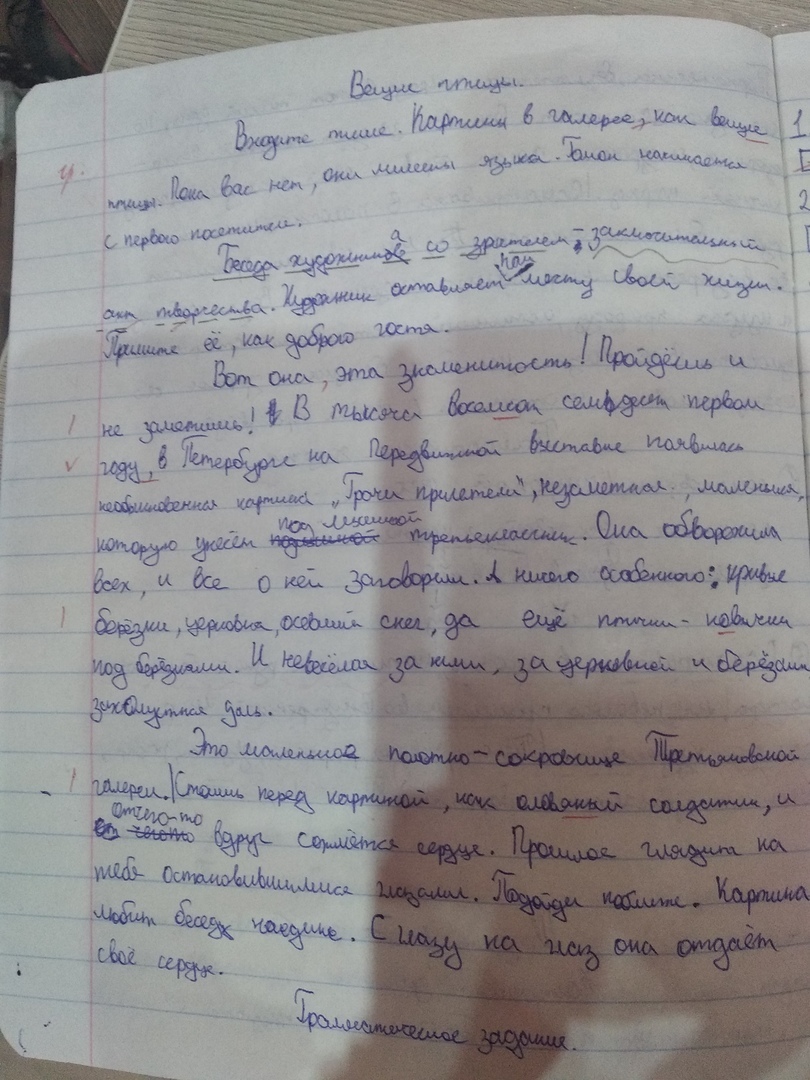 Вещие птицы.
Входите тише. Картины в галерее, как вещие
ч.
птицы. Пока вас нет, они лишены языка. Гомон начинается
с первого посетителя.
Беседа художника со зрителем - заключительный
акт творчества. Художник оставляет нам мечту своей жизни.
Примите её, как доброго гостя.
Вот она, эта знаменитость! Пройдёшь и
не заметишь! В тысяча восемсот семьдесят первом
году, в Петербурге на Передвижной выставке появилась
необыкновенная картина „Грачи прилетели", незаметная, маленькая,
которую унесёт под мышкой третьеклассник. Она обворожила
всех, и все о ней заговорили. А ничего особенного: кривые
берёзки, церковка, осевший снег, да ещё птички-новички
под берёзками. И невесёлая за ними, за церковкой и берёзами
захолустная даль.
Это маленькое полотно-сокровище Третьяковской
галереи. Стоишь перед картиной, как оловяный солдатик, и
отчего-то вдруг сожмётся сердце. Прошлое глядит на
тебя остановившимися глазами. Подойди поближе. Картина
любит беседу наедине. С глазу на глаз она отдаёт
своё сердце.
Грамматическое задание.
1
2